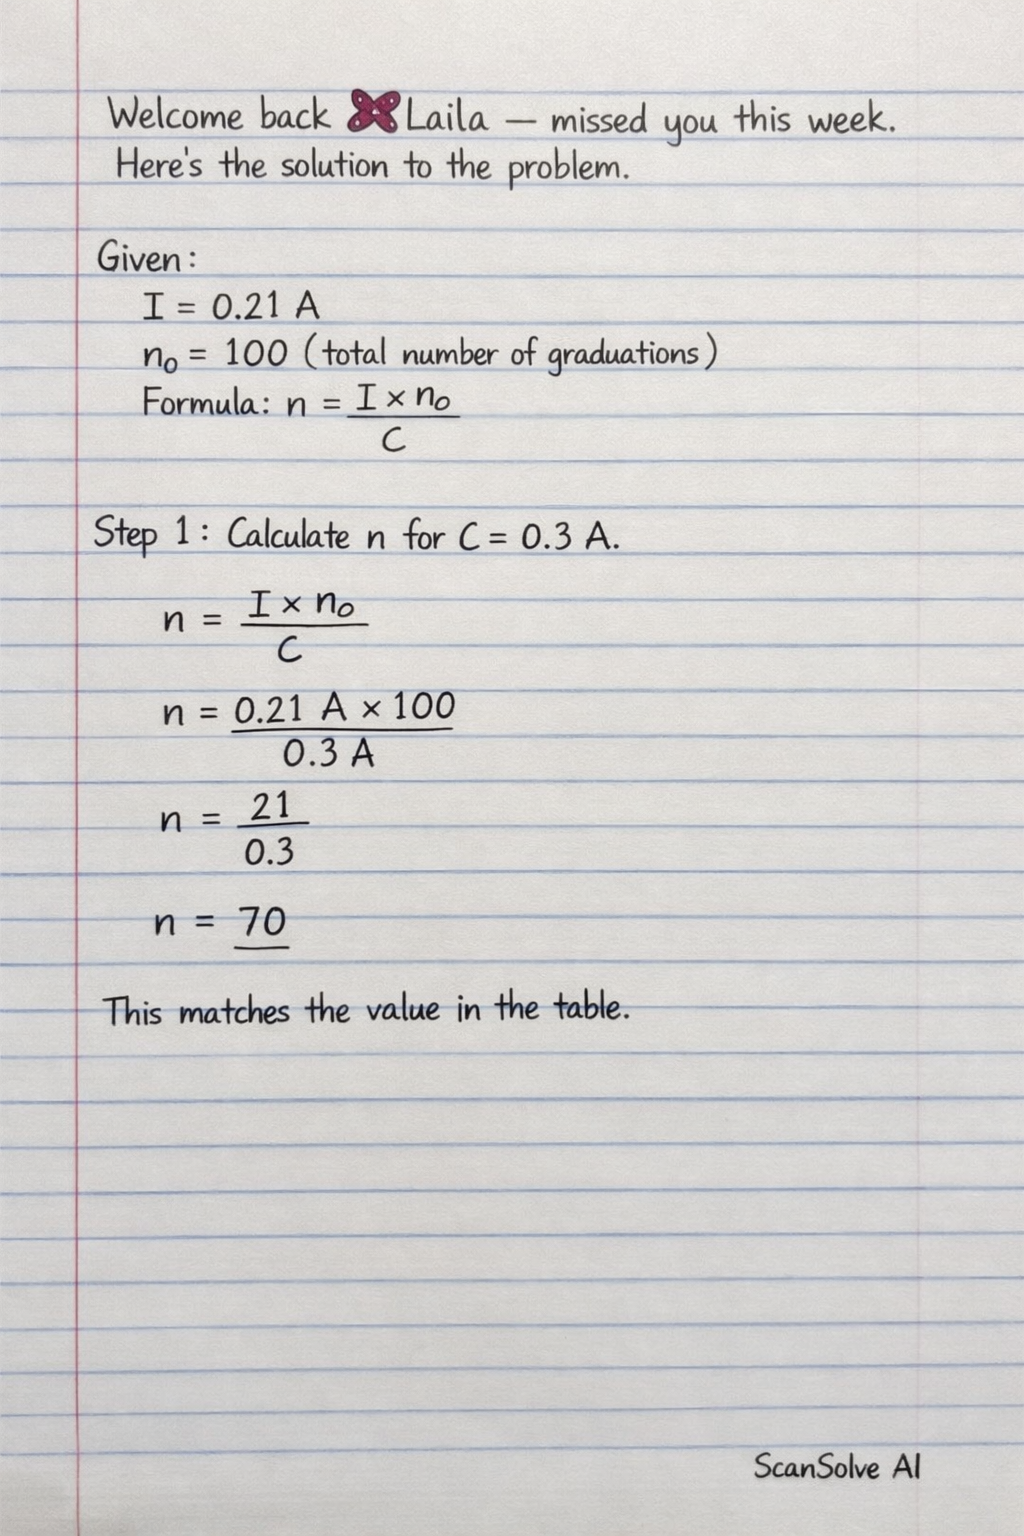 Welcome back Laila — missed you this week.
Here's the solution to the problem.
Given:
I = 0.21 A
n₀ = 100 (total number of graduations)
Formula: n = I × n₀
C
Step 1: Calculate n for C = 0.3 A.
n = I × n₀
C
n = 0.21 A × 100
0.3 A
n = 21
0.3
n = 70
This matches the value in the table.
ScanSolve AI